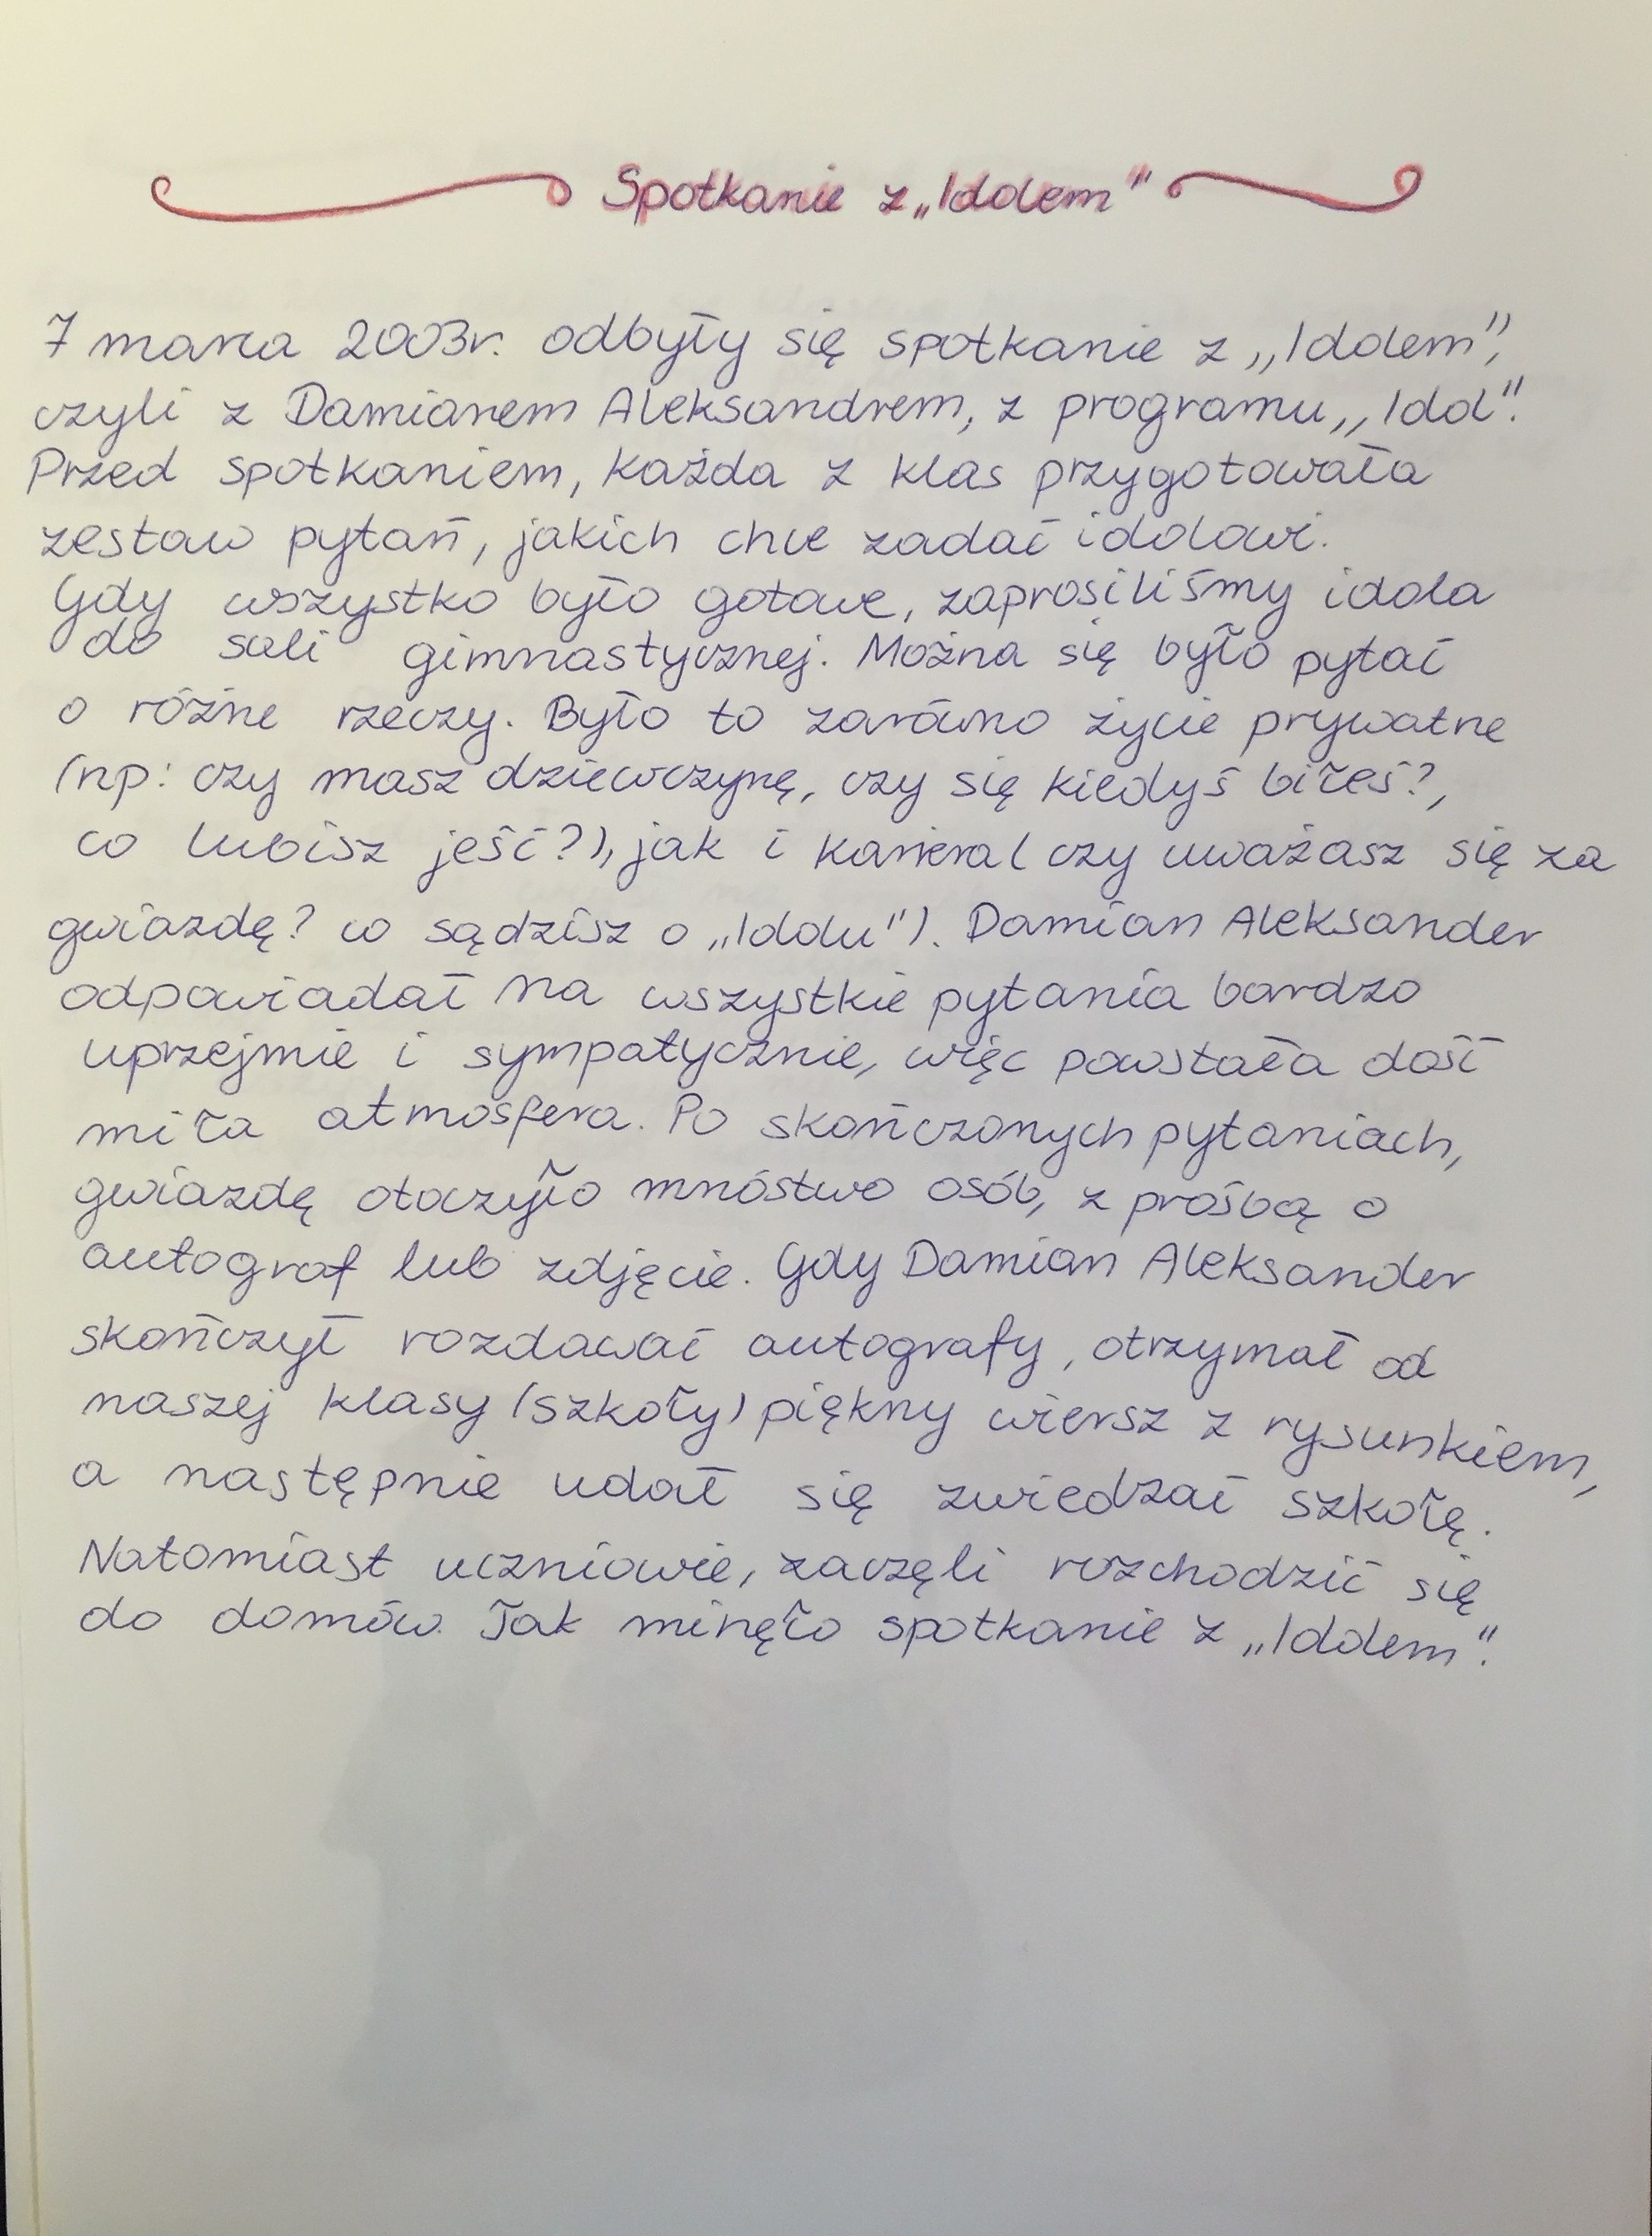 Spotkanie z „Idolem"
7 marca 2003r. odbyły się spotkanie z „Idolem",
czyli z Damianem Aleksandrem, z programu „Idol".
Przed spotkaniem, każda z klas przygotowała
zestaw pytań, jakich chce zadać idolowi.
Gdy wszystko było gotowe, zaprosiliśmy idola
do sali gimnastycznej. Można się było pytać
o różne rzeczy. Było to zarówno życie prywatne
(np: czy masz dziewczynę, czy się kiedyś biłeś?,
co lubisz jeść?), jak i kariera ( czy uważasz się za
gwiazdę? co sądzisz o „Idolu"). Damian Aleksander
odpowiadał na wszystkie pytania bardzo
uprzejmie i sympatycznie, więc powstała dość
miła atmosfera. Po skończonych pytaniach,
gwiazdę otoczyło mnóstwo osób, z prośbą o
autograf lub zdjęcie. Gdy Damian Aleksander
skończył rozdawać autografy, otrzymał od
naszej klasy (szkoły) piękny wiersz z rysunkiem,
a następnie udał się zwiedzać szkołę.
Natomiast uczniowie, zaczęli rozchodzić się
do domów. Tak minęło spotkanie z „Idolem".